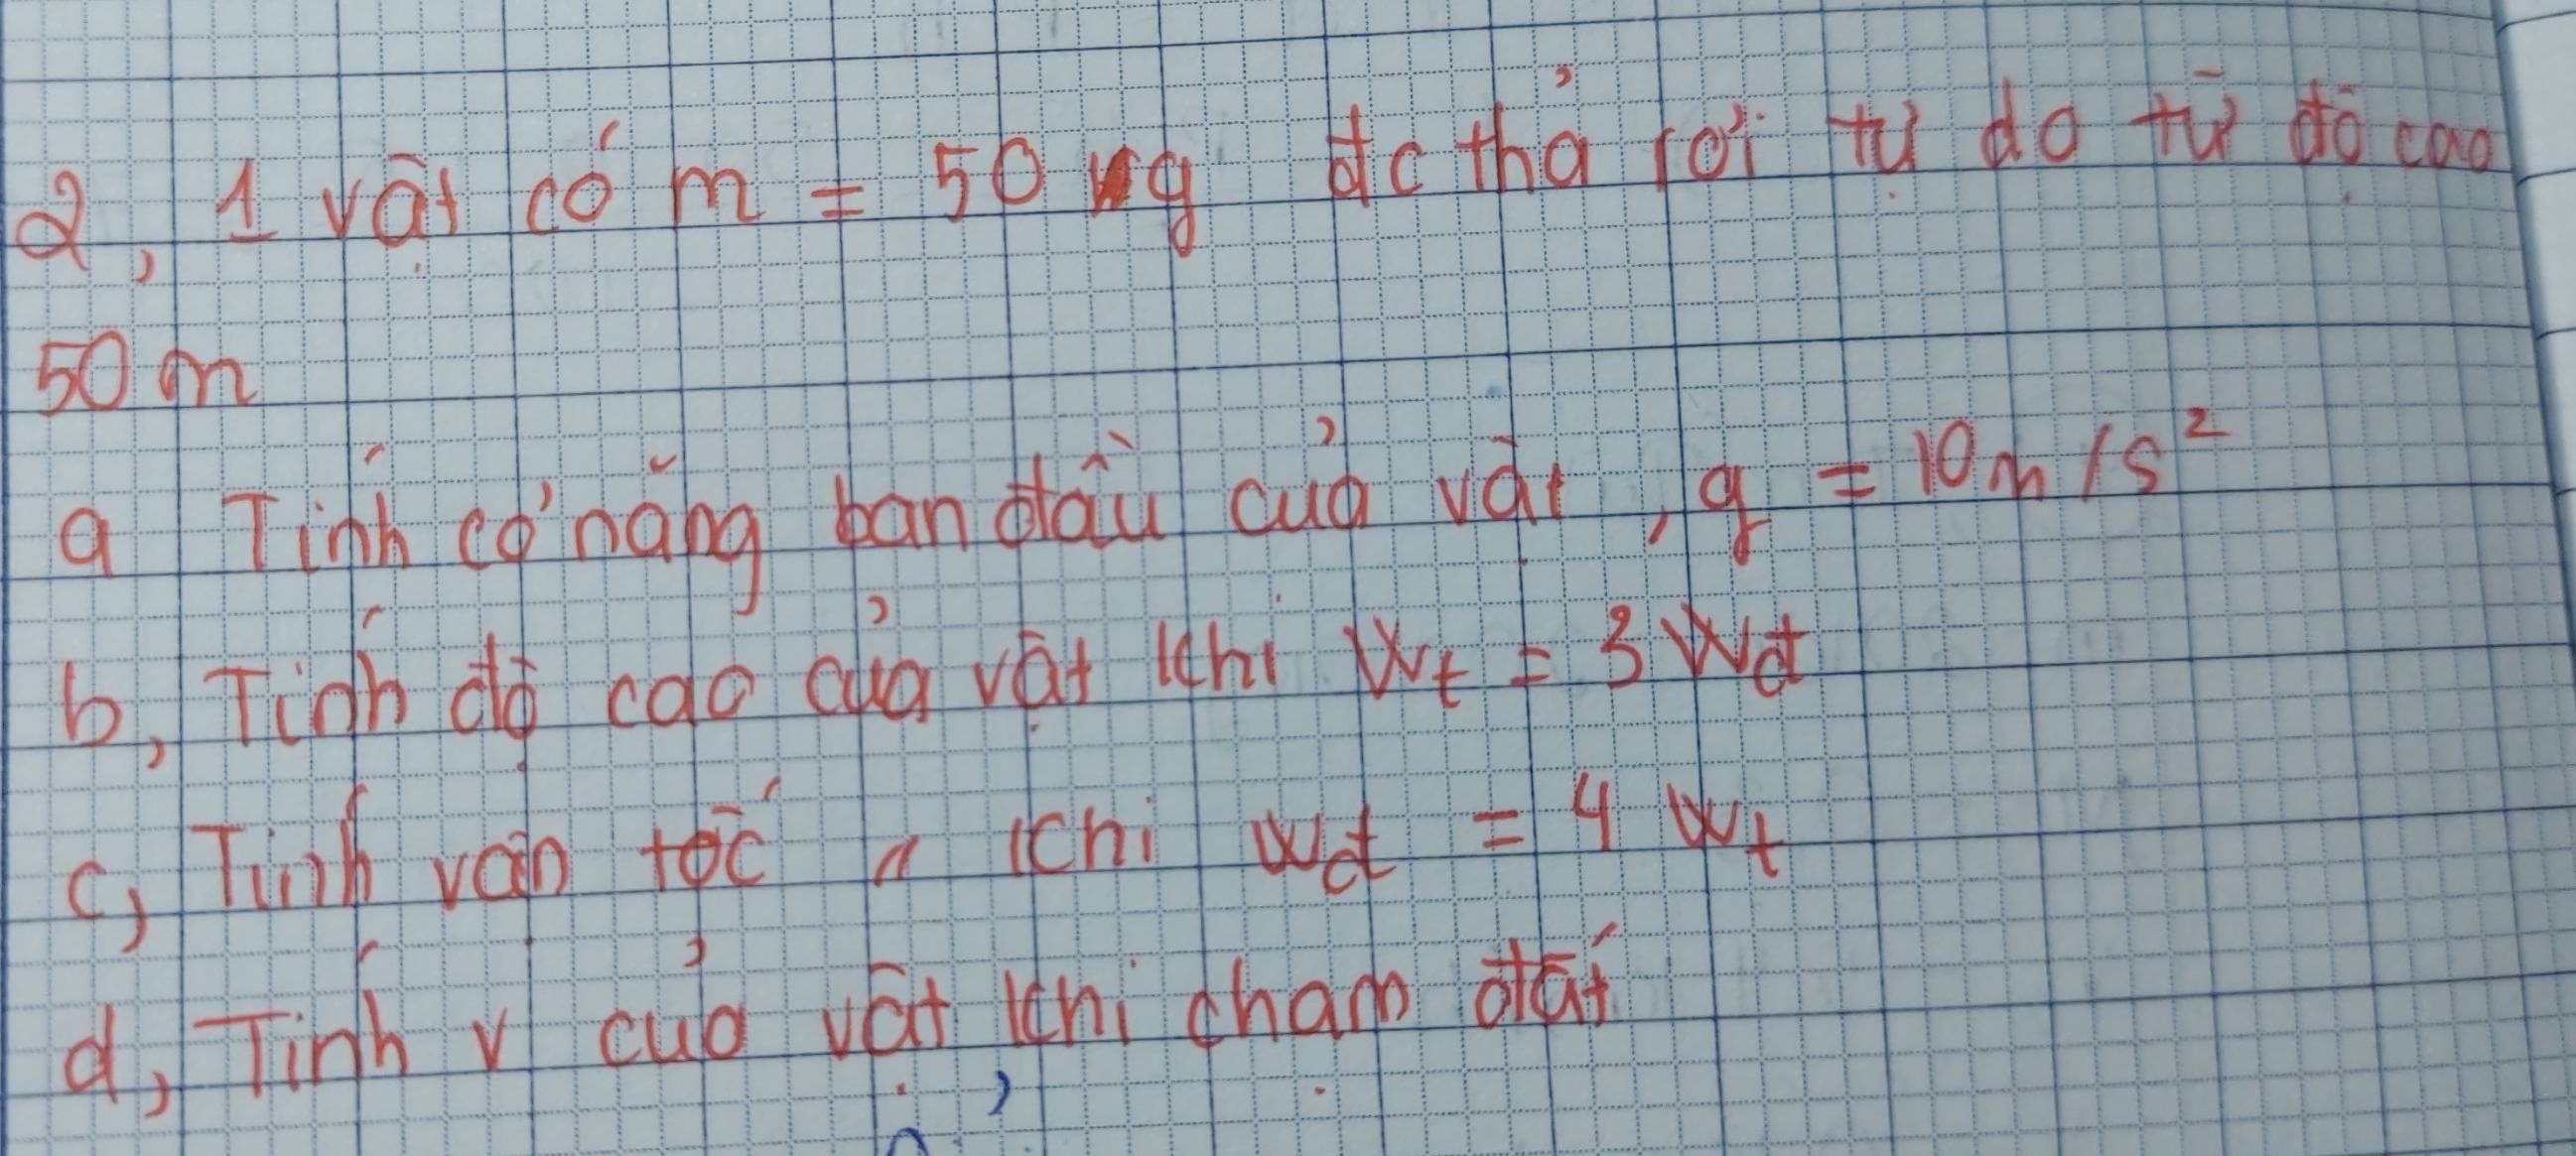 2, 1 vật có m = 50 g đc thả rơi tự do từ độ cao
50 m
a Tính cơ năng ban đầu của vật, g = 10m/s²
b, Tính độ cao của vật khi Wt = 3 Wđ
c, Tính vận tốc " khi Wđ = 4 Wt
d, Tính v của vật khi chạm đất